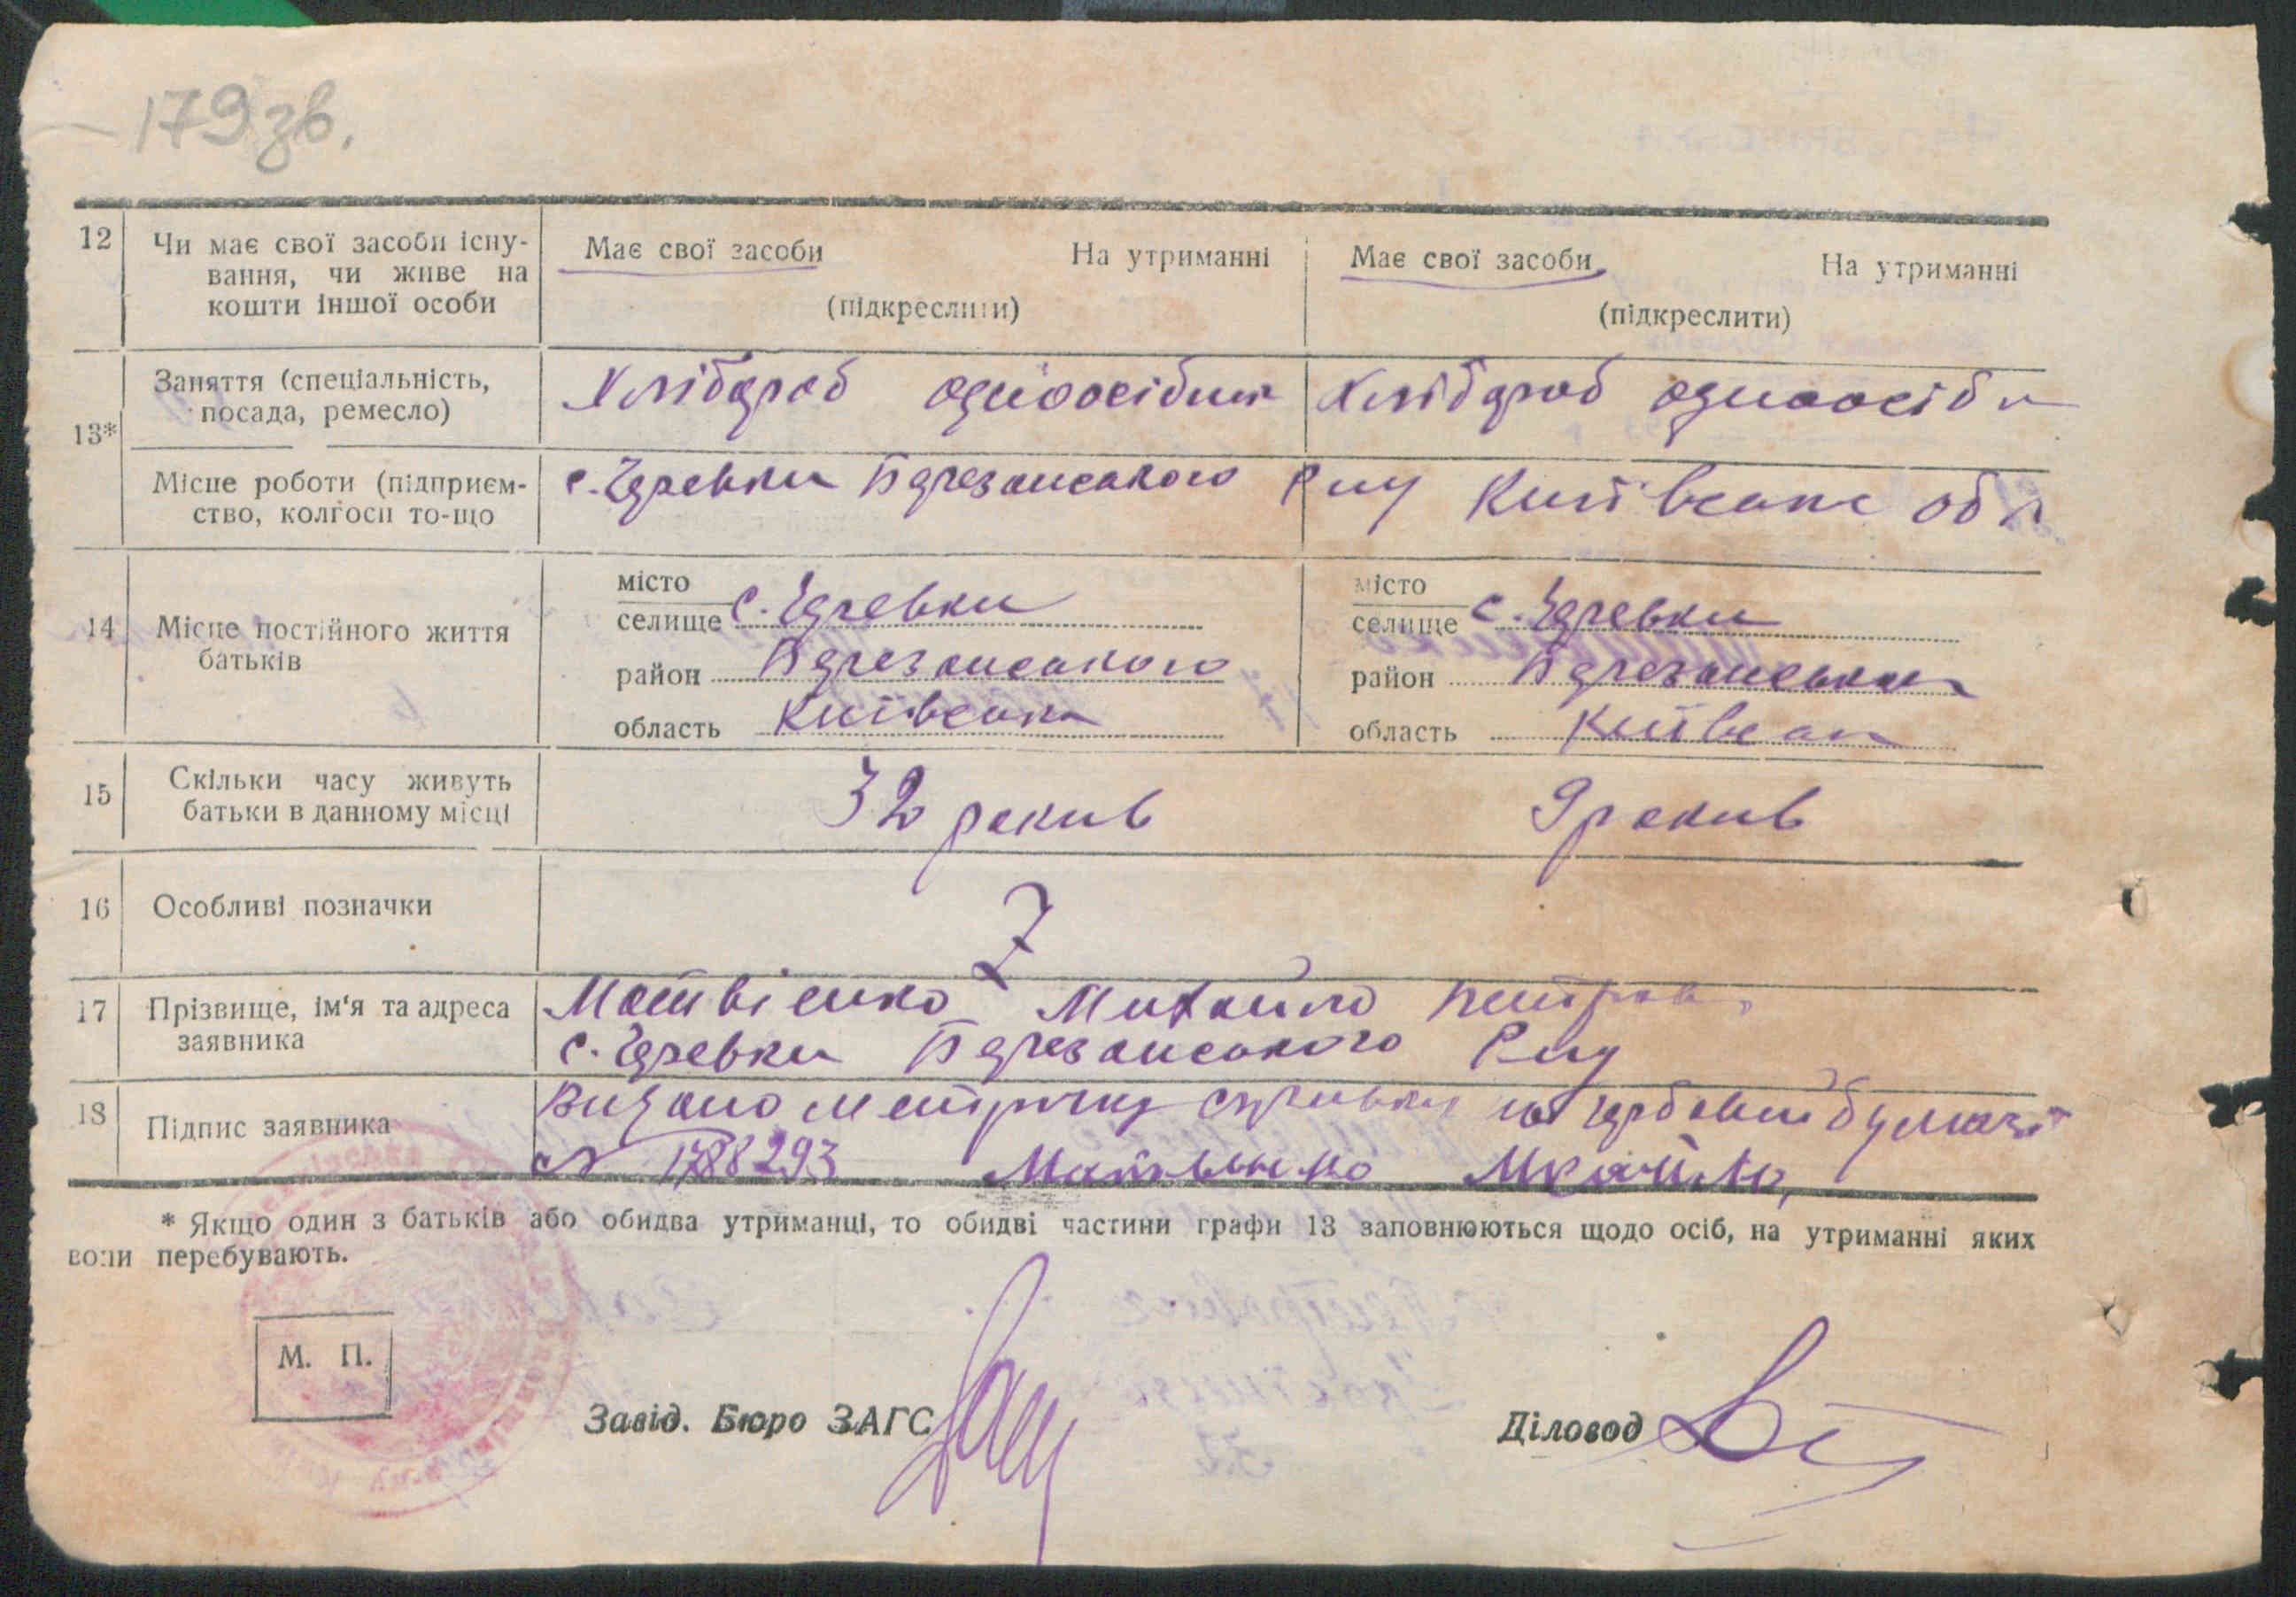 179 зв.
12 Чи має свої засоби існу- Має свої засоби На утриманні Має свої засоби На утриманні
вання, чи живе на
кошти іншої особи (підкреслити) (підкреслити)
13* Заняття (спеціальність, Хлібороб одноосібник Хлібороб одноосібн
посада, ремесло)
Місце роботи (підприєм- с. Черевки Березанського Р-ну Київської обл
ство, колгосп то-що
14 Місце постійного життя
батьків
місто
селище с. Черевки
район Березанського
область Київська
місто
селище с. Черевки
район Березанськи
область Київськ
15 Скільки часу живуть 32 роков 9 роков
батьки в данному місці
16 Особливі позначки
17 Прізвище, ім'я та адреса Матвієнко Михайло Петров
заявника с. Черевки Березанського Р-ну
18 Підпис заявника Видано метричну справку на гербовий бумазі
№ 1788293 Матвынко
* Якщо один з батьків або обидва утриманці, то обидві частини графи 13 заповнюються щодо осіб, на утриманні яких
вони перебувають.
М. П.
Завід. Бюро ЗАГС
Діловод